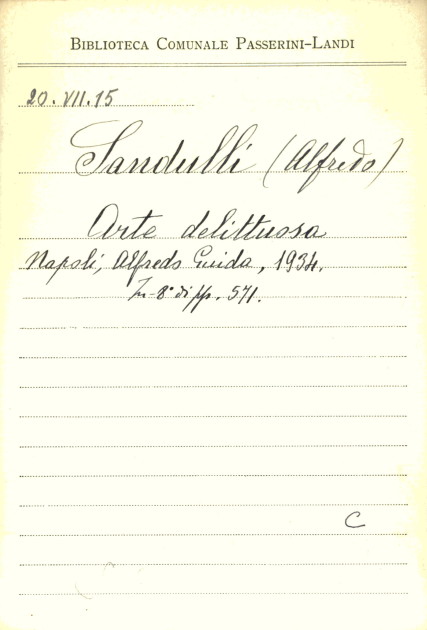 BIBLIOTECA COMUNALE PASSERINI-LANDI
20. VII. 15
Sandulli (Alfredo)
Arte delittuosa
Napoli, Alfredo Guida, 1934.
In-8° di pp. 571.
C